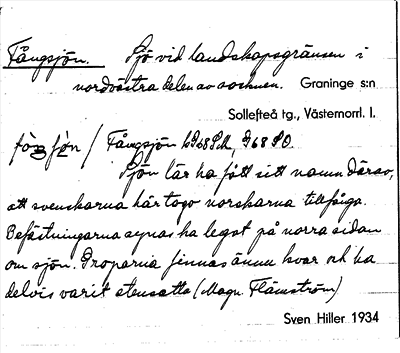 Fångsjön. Sjö vid landskapsgränsen i
nordvästra delen av socknen. Graninge s:n
Sollefteå tg., Västernorrl. l.
Fångsjön
Sjön lär ha fått sitt namn därav,
att svenskarna här togo norskarna tillfånga.
Befästningarna synas ha legat på norra sidan
om sjön. Groparna finnas ännu kvar och ha
delvis varit stensatta (Magn. Flämström)
Sven Hiller 1934